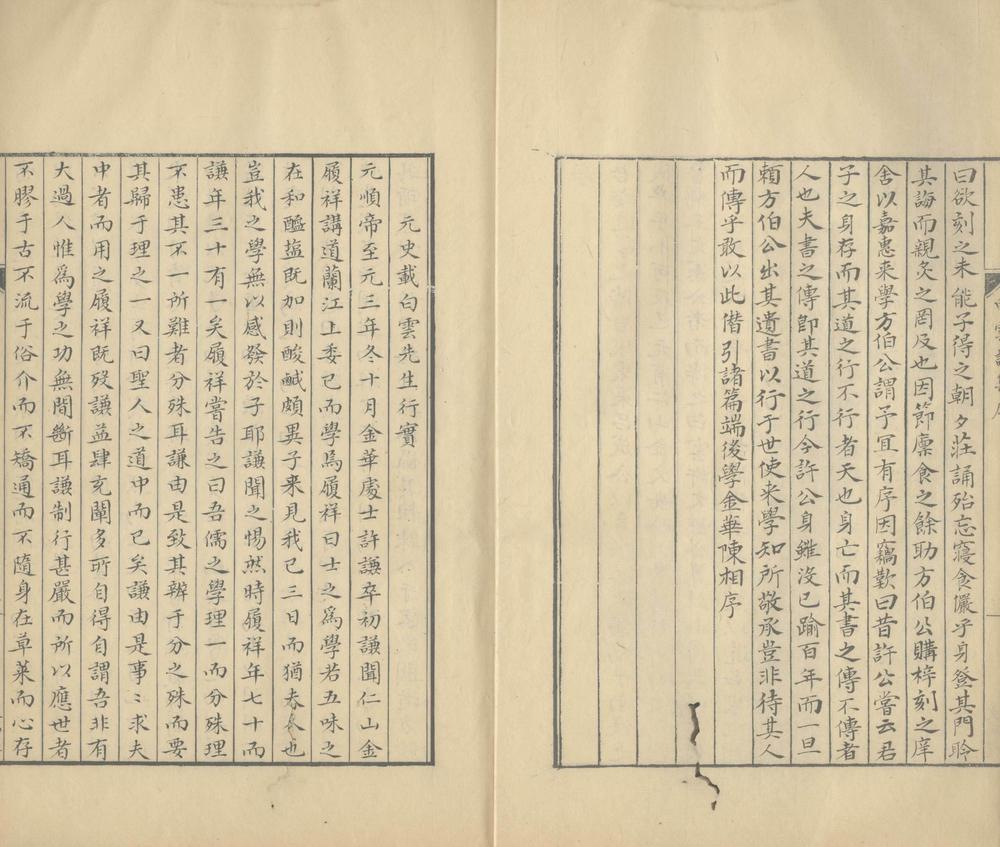 曰欲刻之未能子得之朝夕莊誦殆忘寢食儼乎身登其門聆
其誨而親炙之罔伋也因節廩食之餘助方伯公購梓刻之庠
舍以嘉惠来學方伯公謂子宜有序因竊歎曰昔許公嘗云君
子之身存而其道之行不行者天也身亡而其書之傳不傳者
人也夫書之傳即其道之行今許公身雖沒已踰百年而一旦
賴方伯公出其遺書以行于世使来學知所敬承豈非待其人
而傳乎敢以此僭引諸篇端後學金華陳相序
元史載白雲先生行實
元順帝至元三年冬十月金華處士許謙卒初謙聞仁山金
履祥講道蘭江上委己而學焉履祥曰士之為學若五味之
在和醯塩既加則酸鹹頗異子来見我已三日而猶夫人也
豈我之學無以感發於子耶謙聞之惕然時履祥年七十而
謙年三十有一矣履祥嘗告之曰吾儒之學理一而分殊理
不患其不一所難者分殊耳謙由是致其辨于分之殊而要
其歸于理之一又曰聖人之道中而已矣謙由是事〻求夫
中者而用之履祥既歿謙益肆充闡多所自得自謂吾非有
大過人惟為學之功無間斷耳謙制行甚嚴而所以應世者
不膠于古不流于俗介而不矯通而不隨身在草莱而心存